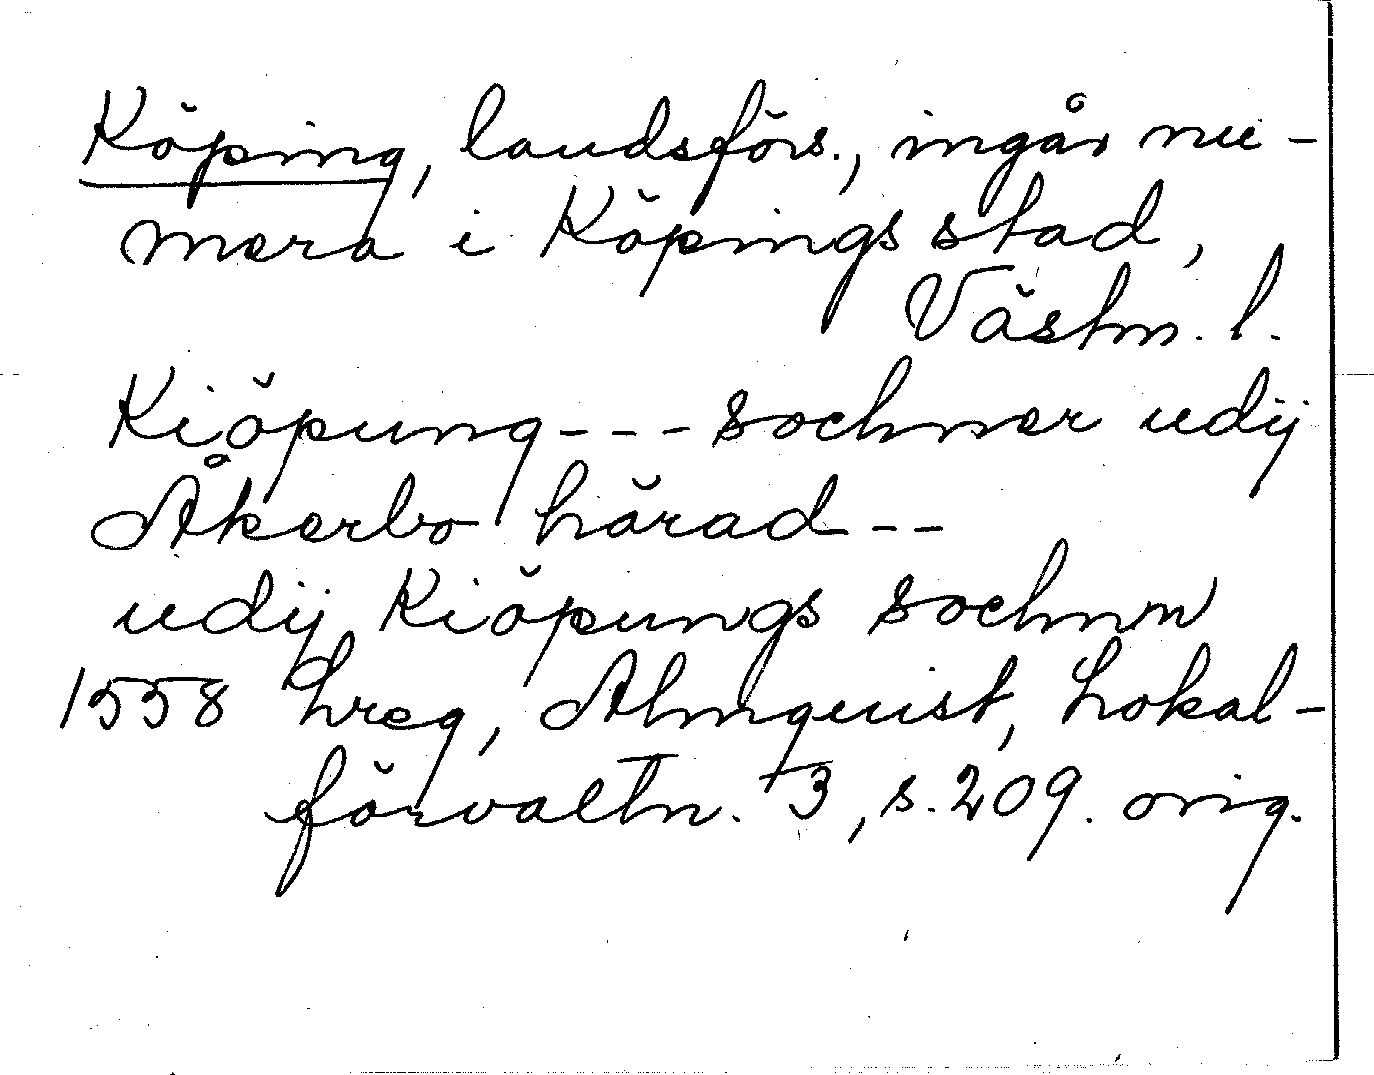 Köping, landsförs., ingår nu-
mera i Köpings stad,
Västm. l.
Kiöpung - - - sochner udij
Åkerbo härad - -
udij Kiöpungs sochnn
1558 hreg, Almquist, Lokal-
förvaltn. 3, s. 209. orig.